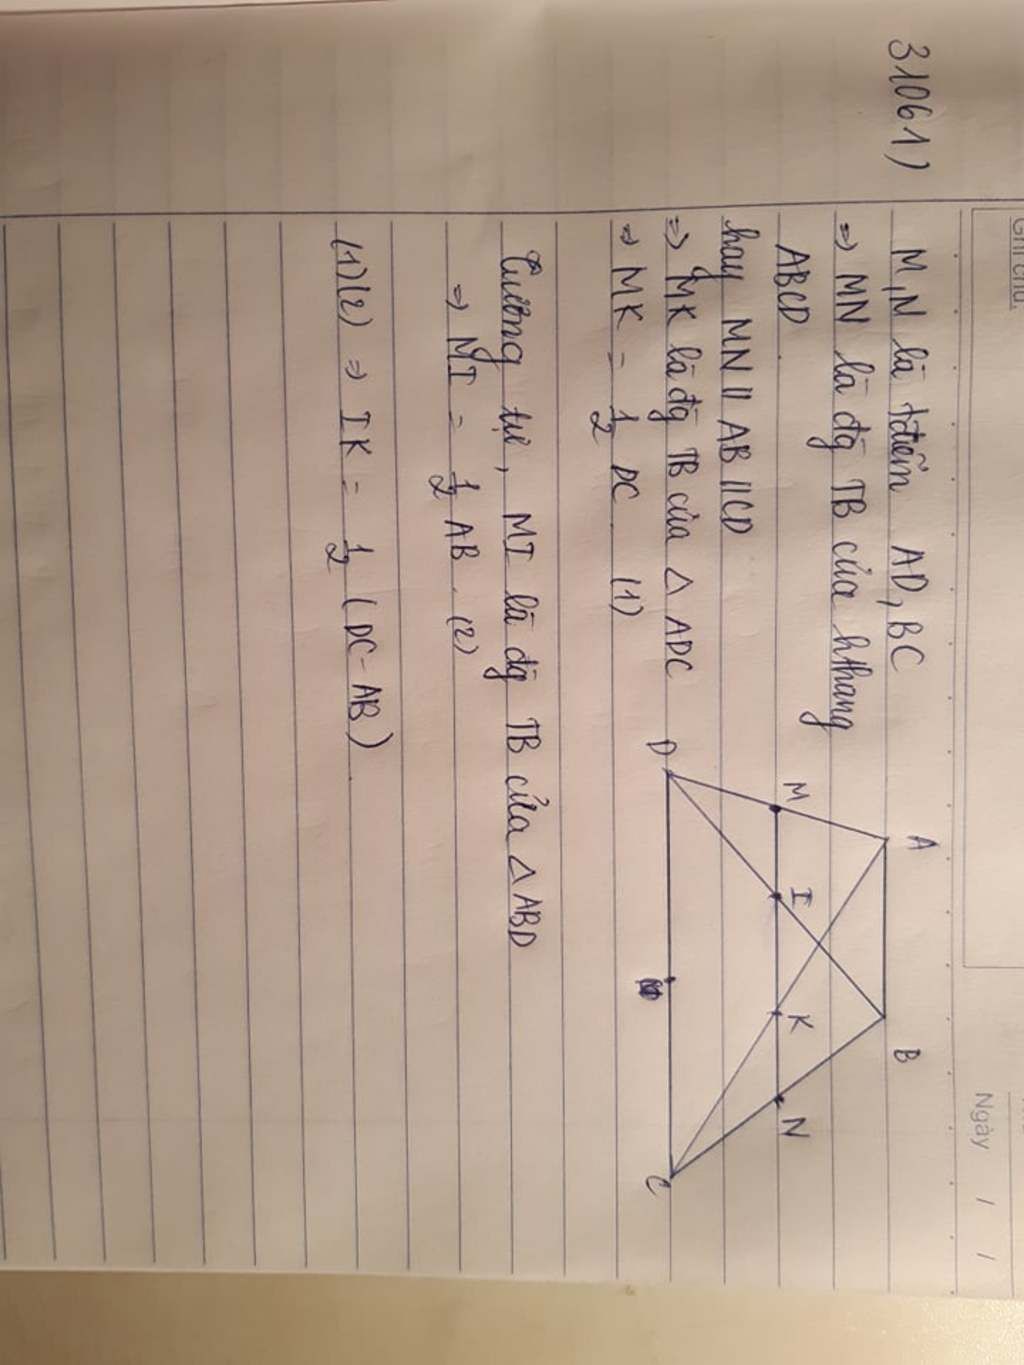 Ghi chú:
Ngày / /
31061)
M,N là tđiểm AD, BC
⇒ MN là đg TB của hthang
ABCD.
hay MN // AB // CD
⇒ MK là đg TB của △ ADC
⇒ MK = 1/2 DC (1)
Tương tự, MI là đg TB của △ ABD
⇒ MI = 1/2 AB (2)
(1)(2) ⇒ IK = 1/2 (DC - AB)
A B
M I K N
D C